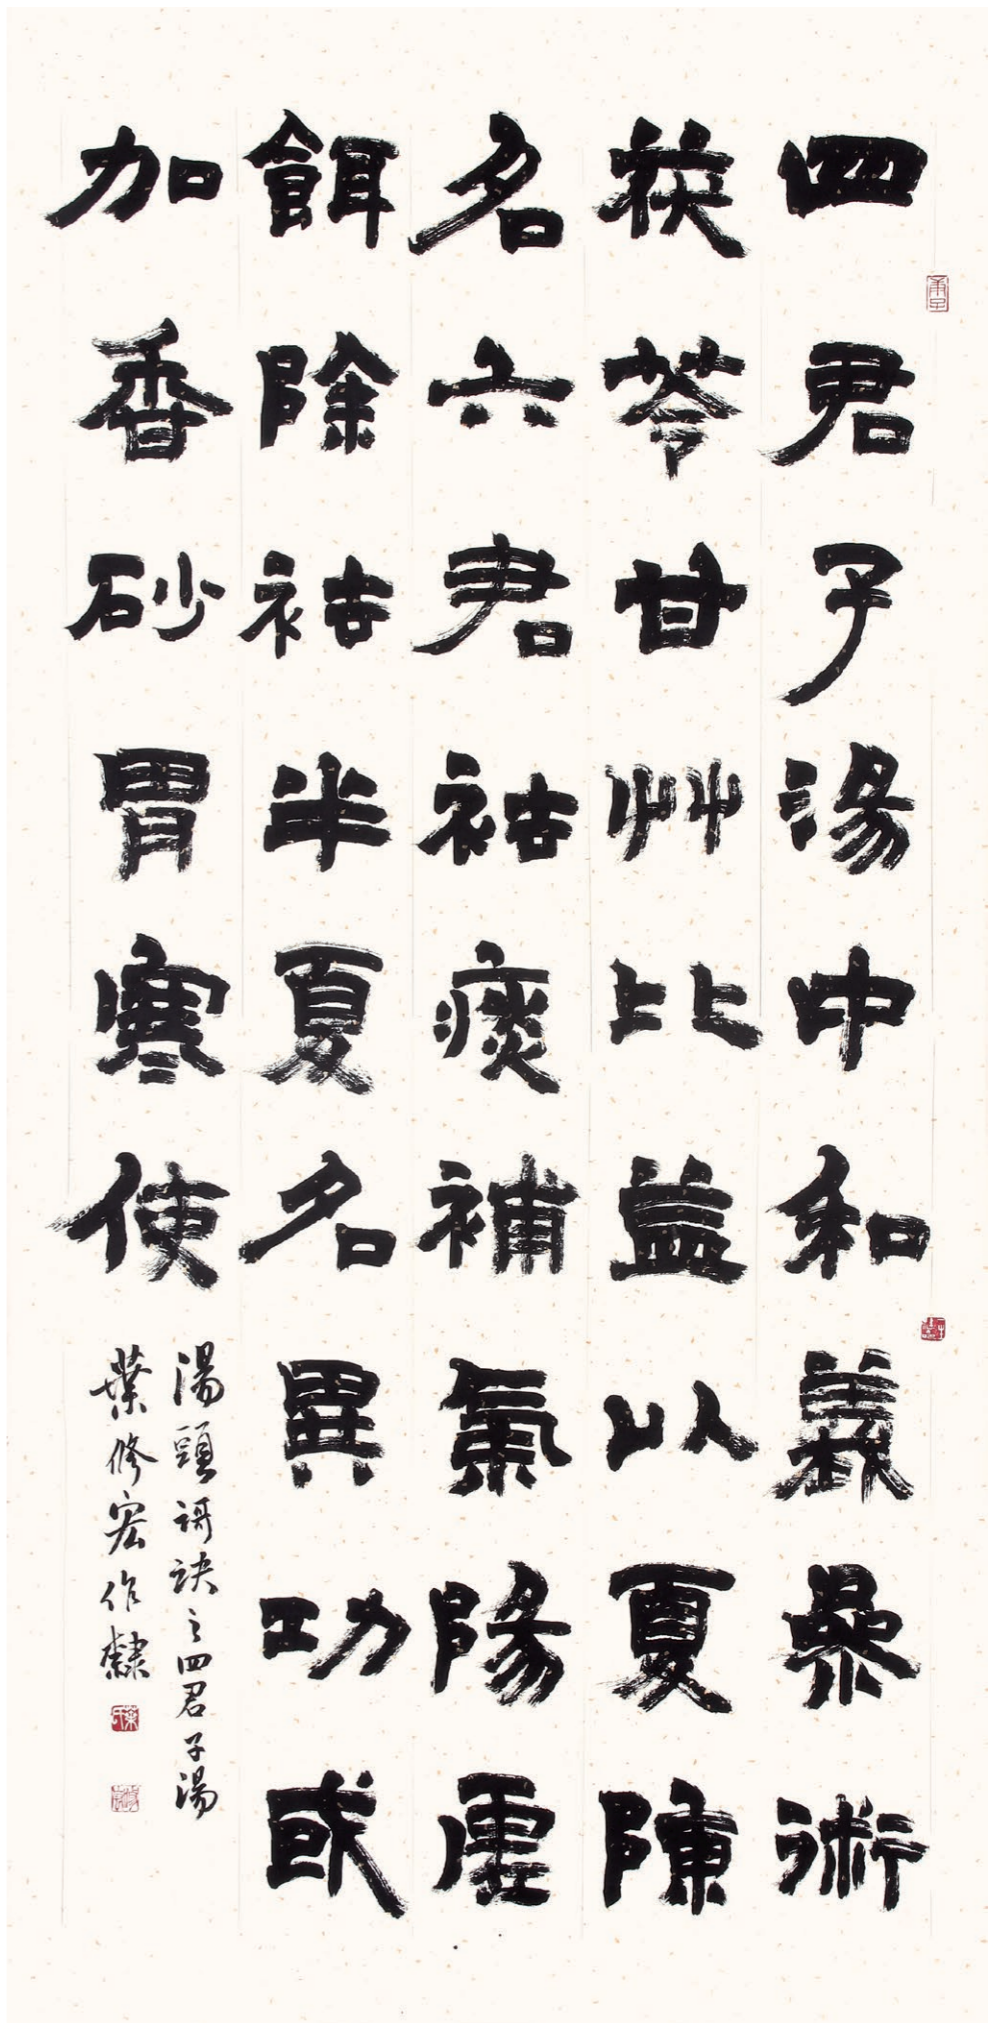 四君子湯中和義參術
茯苓甘艸比益以夏陳
名六君祛痰補氣陽虛
餌除祛半夏名異功或
加香砂胃寒使
湯頭謌訣之四君子湯
葉修宏作隸